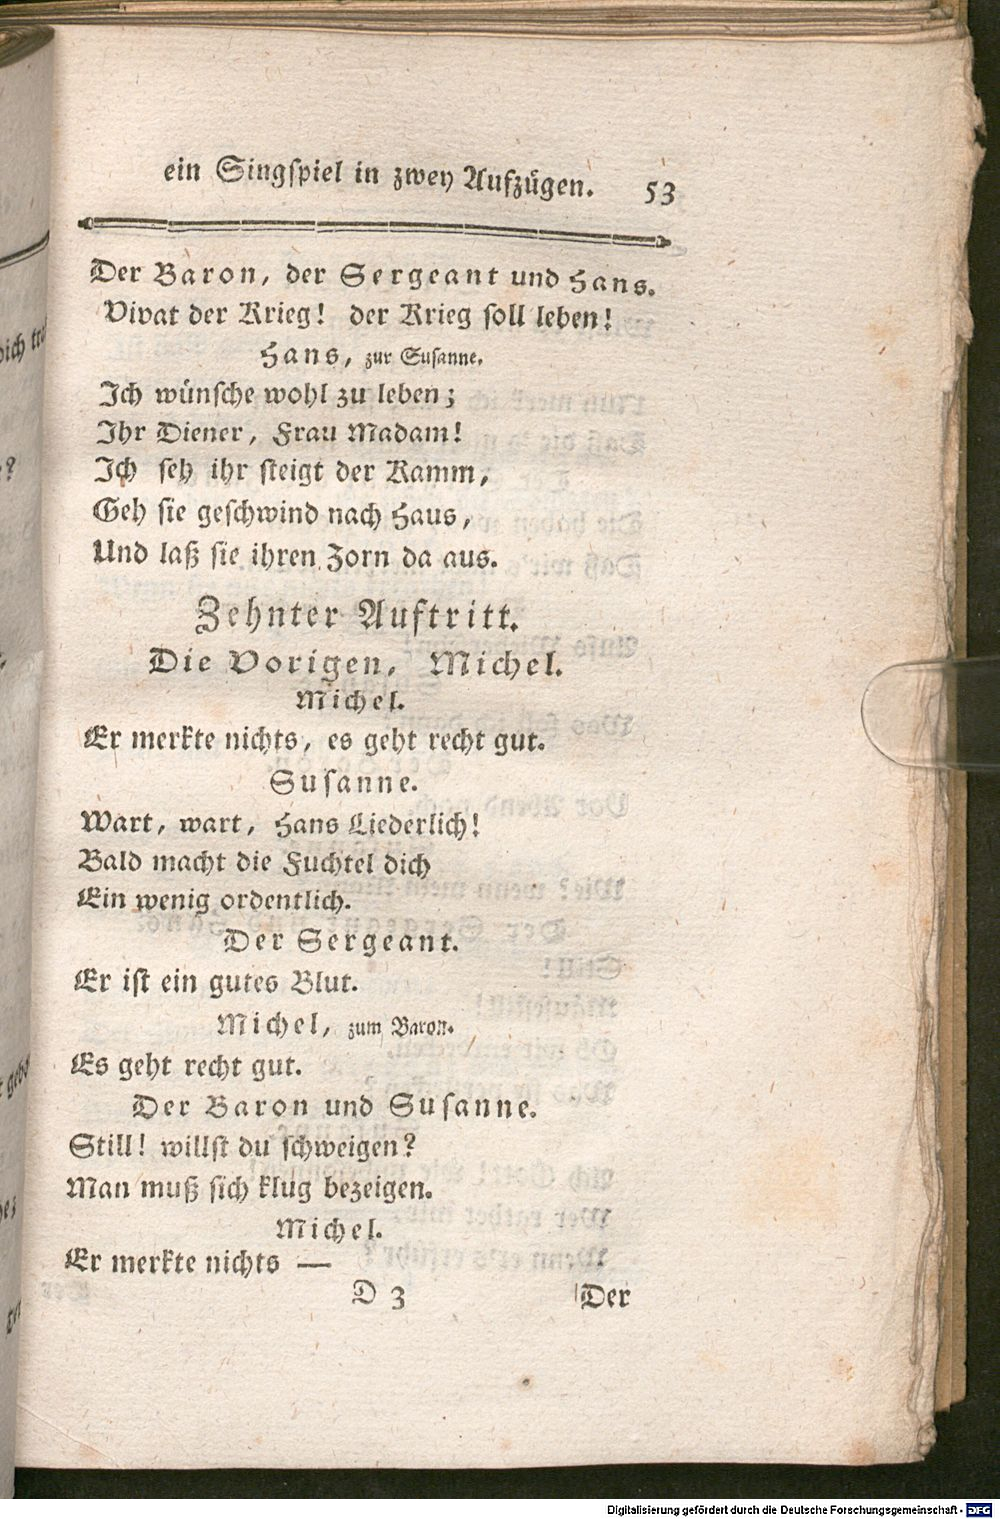 ein Singspiel in zwey Aufzügen. 53
Der Baron, der Sergeant und Hans.
Vivat der Krieg! der Krieg soll leben!
Hans, zur Susanne.
Ich wünsche wohl zu leben;
Ihr Diener, Frau Madam!
Ich seh ihr steigt der Kamm,
Geh sie geschwind nach Haus,
Und laß sie ihren Zorn da aus.
Zehnter Auftritt.
Die Vorigen, Michel.
Michel.
Er merkte nichts, es geht recht gut.
Susanne.
Wart, wart, Hans Liederlich!
Bald macht die Fuchtel dich
Ein wenig ordentlich.
Der Sergeant.
Er ist ein gutes Blut.
Michel, zum Baron.
Es geht recht gut.
Der Baron und Susanne.
Still! willst du schweigen?
Man muß sich klug bezeigen.
Michel.
Er merkte nichts —
D 3 Der
Digitalisierung gefördert durch die Deutsche Forschungsgemeinschaft - DFG